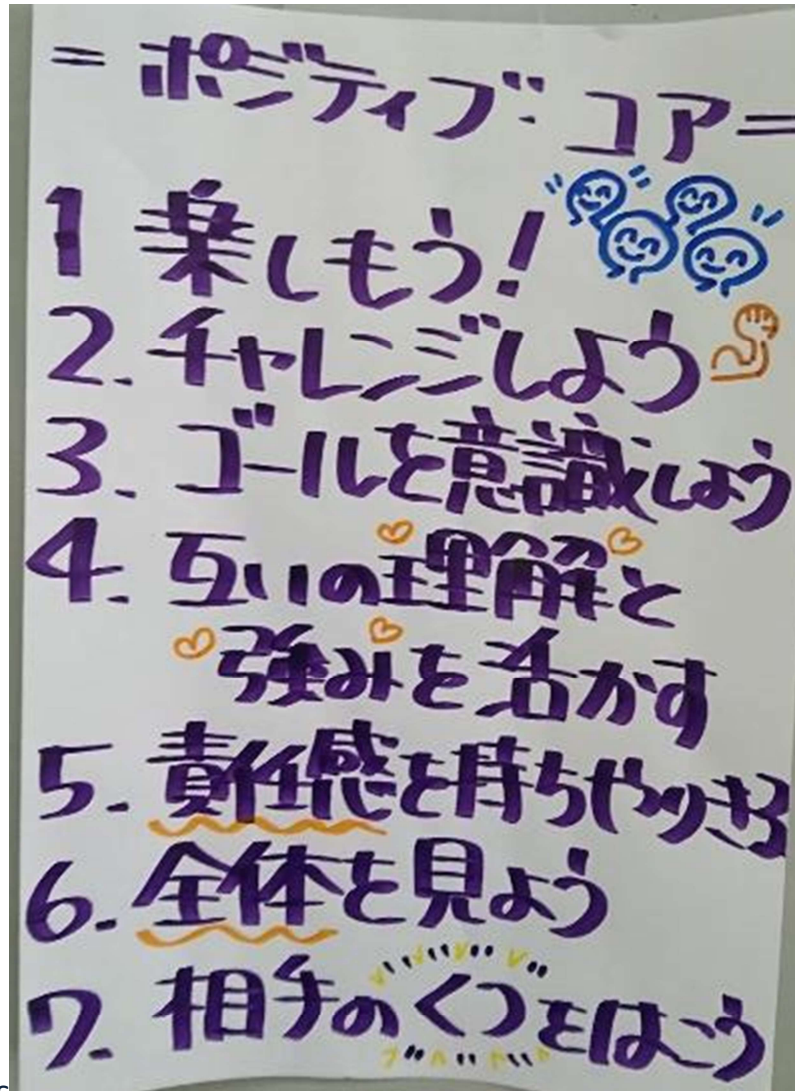 = ポジティブ・コア =
1 楽しもう!
2. チャレンジしよう
3. ゴールを意識しよう
4. 互いの理解と
強みを活かす
5. 責任感を持ちやりきる
6. 全体を見よう
7. 相手のくつをはこう